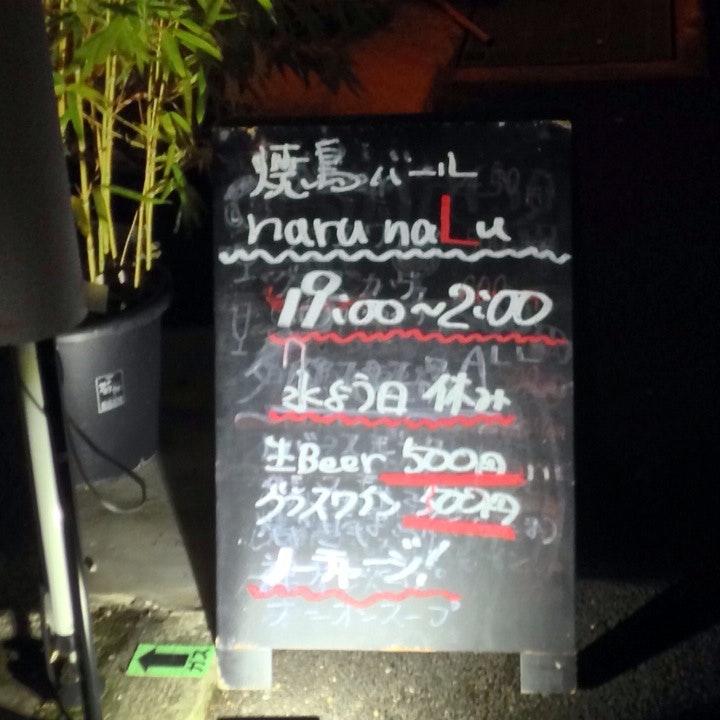 焼鳥バール
naru naLu
19:00~2:00
水よう日 休み
生Beer 500円
グラスワイン 500円
ノーチャージ!
ガス